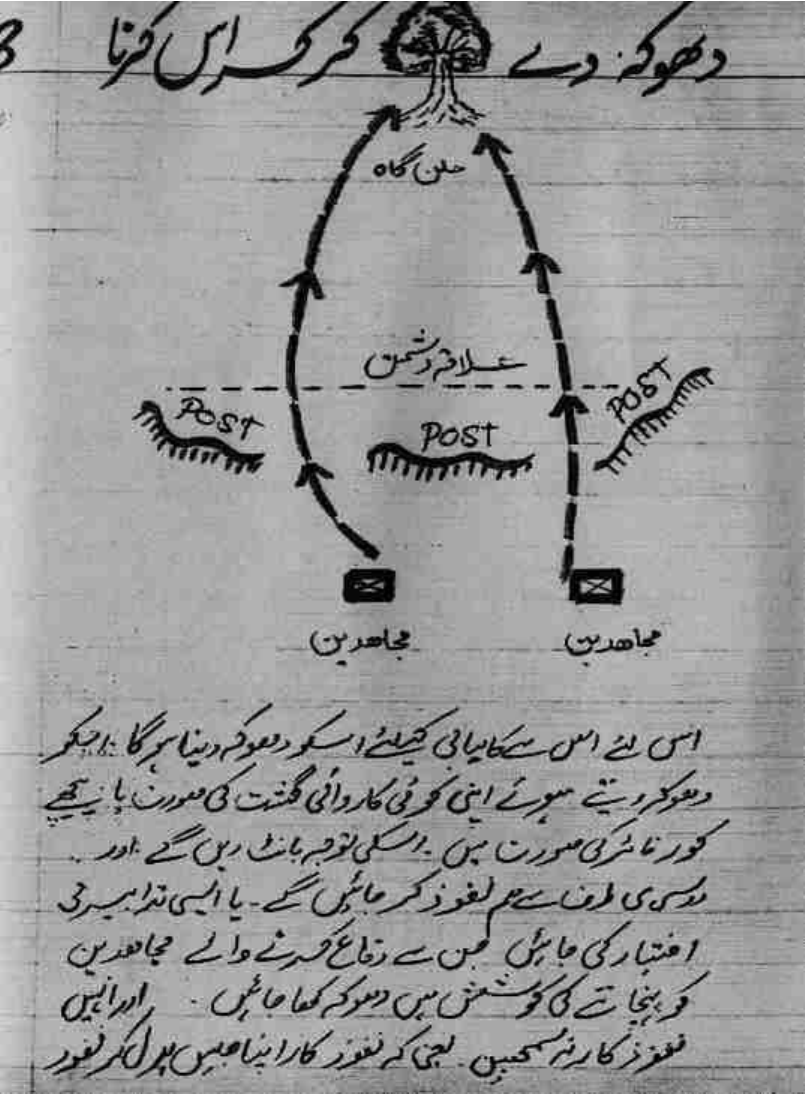 دھوکہ دے کر کراس کرنا
ملن گاہ
علاقہ دشمن
POST
POST
POST
مجاھدین
مجاھدین
اس لئے اس سے کامیابی کیلئے اسکو دھوکہ دینا ہوگا۔ اسکو
دھوکہ دیتے ہوئے اپنی کوئی کاروائی گشت کی صورت یا پیچھے
کور فائر کی صورت میں۔ اسکی توجہ بانٹ دیں گے اور
دوسری طرف سے ہم نفوذ کر جائیں گے۔ یا ایسی تدابیر
اختیار کی جائیں جن سے دفاع کرنے والے مجاھدین
کو کی کوشش میں دھوکہ کھا جائیں۔ اور انہیں
نفوذ کار نہ سمجھیں۔ یعنی کہ نفوذ کار اپنا بدل کر نفوذ